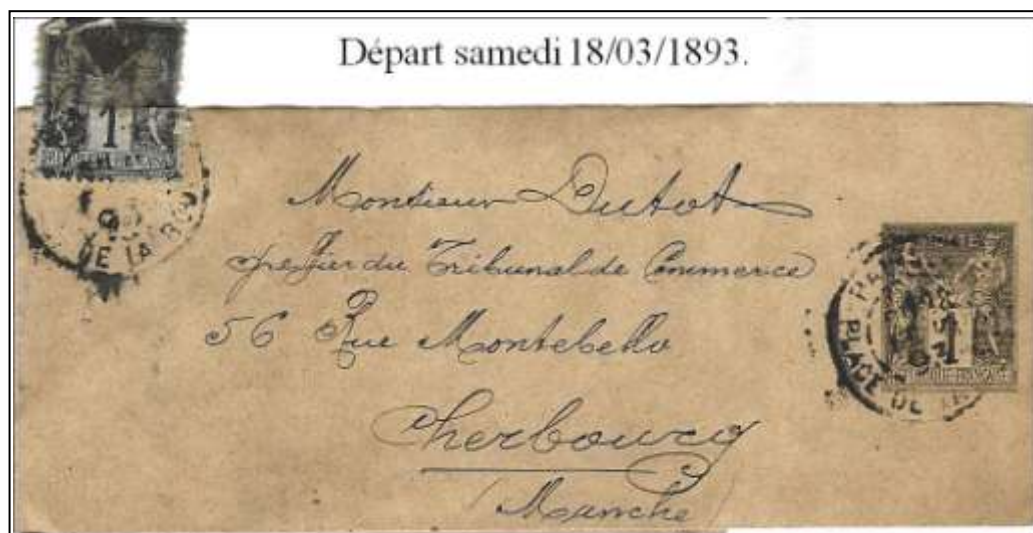 Départ samedi 18/03/1893.
1
DE LA BO
Monsieur Dutot
Greffier du Tribunal de Commerce
56 Rue Montebello
Cherbourg
Manche
1
PLACE DE LA